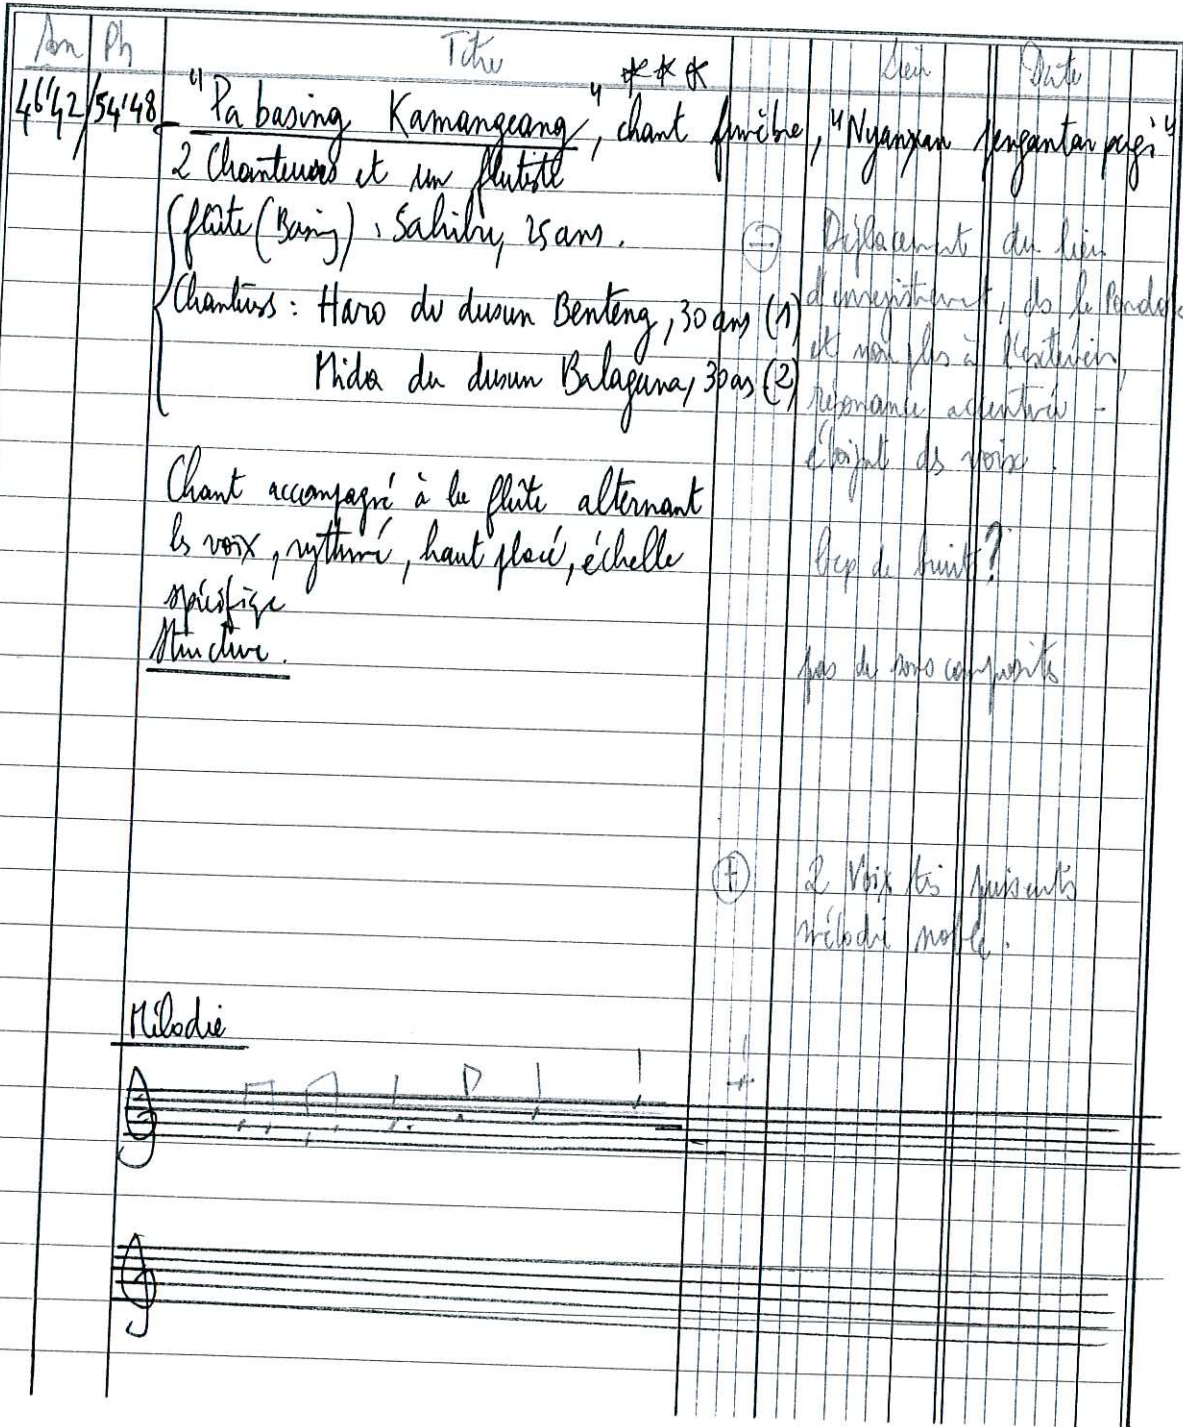 An Ph Titre Lieu Date
***
46'42/54'48 - "Pa basing Kamangeang", chant funèbre, "Nyanyan pengantar pagi"
2 Chanteurs et un flutiste
flûte (Basing) : Sahibu, 25 ans.
Chanteurs : Haro du dusun Benteng, 30 ans (1)
Mida du dusun Balaguna, 30 ans (2)
Chant accompagné à la flûte alternant
les voix, rythmé, haut placé, échelle
spécifique
Structure.
(-) Déplacement du lieu
d'enregistrement, ds le Pendo
et non plus à l'extérieur,
résonance accentuée -
des voix.
bcp de bruit ?
pas de sons composites
(+) 2 Voix très puissants
mélodie noble.
Mélodie